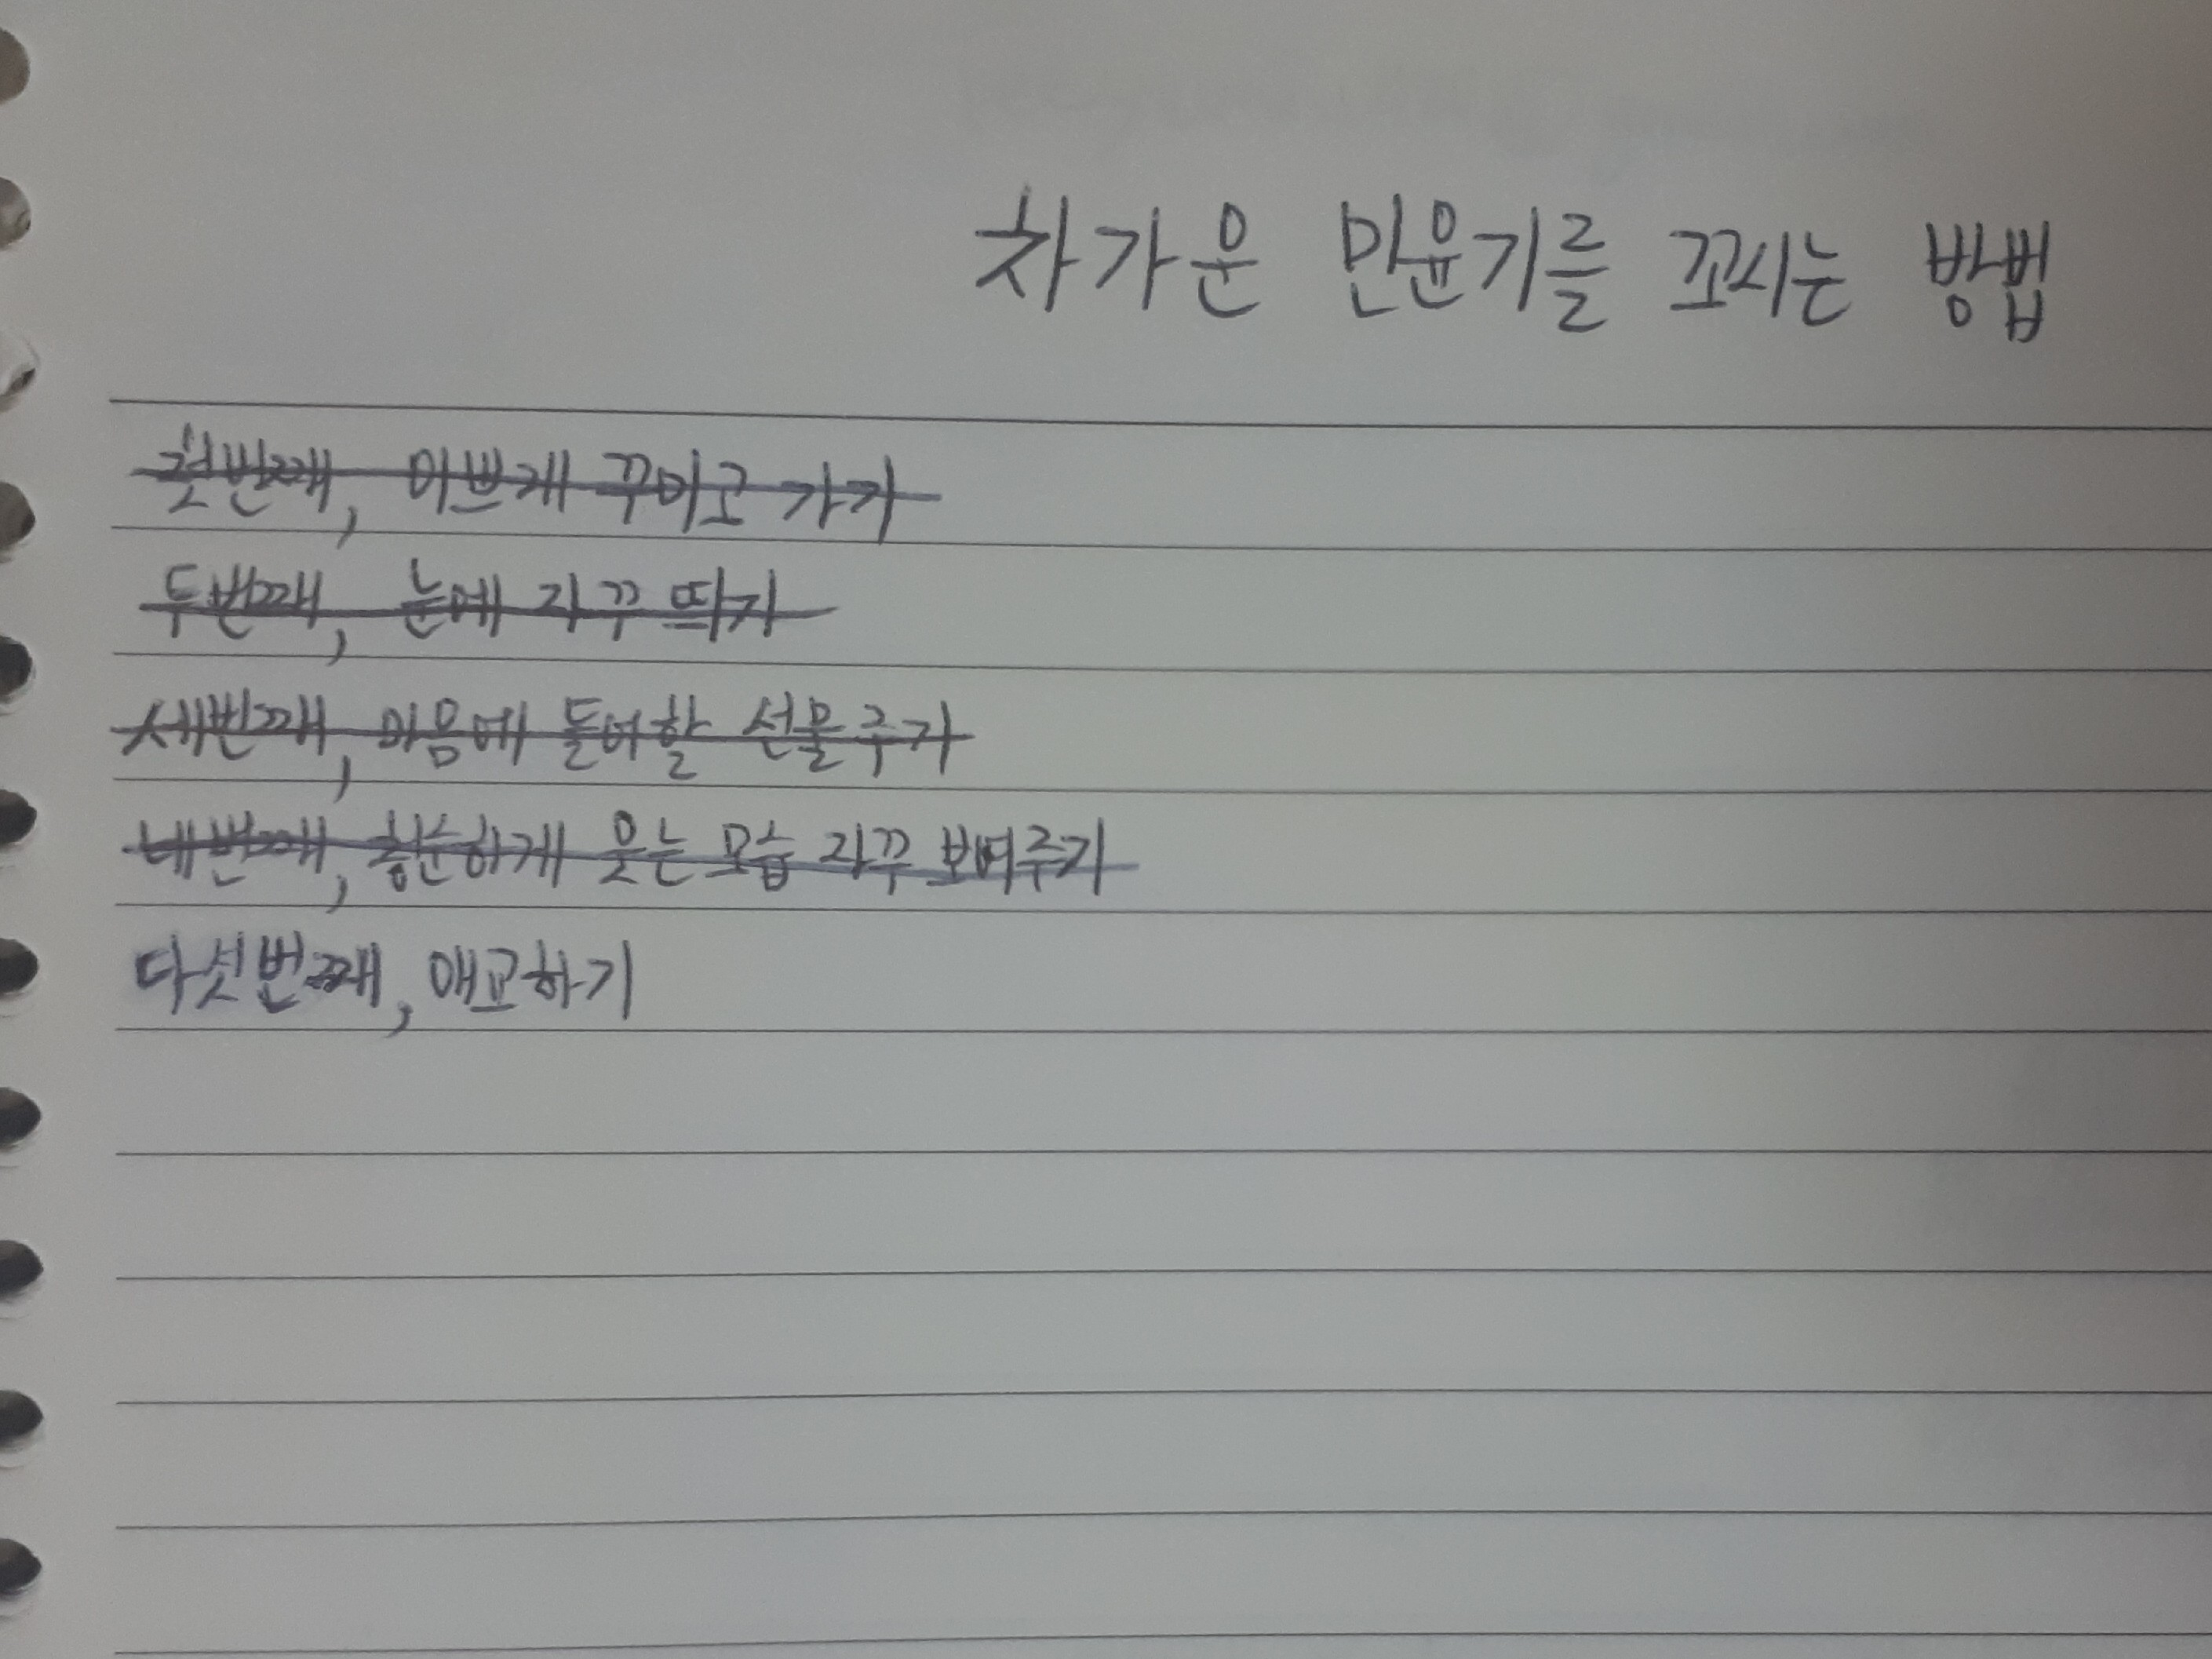 차가운 민윤기를 꼬시는 방법
첫번째, 이쁘게 꾸미고 가기
두번째, 눈에 자꾸 띄기
세번째, 마음에 들어할 선물주기
네번째, 환하게 웃는 모습 자꾸 보여주기
다섯번째, 애교하기